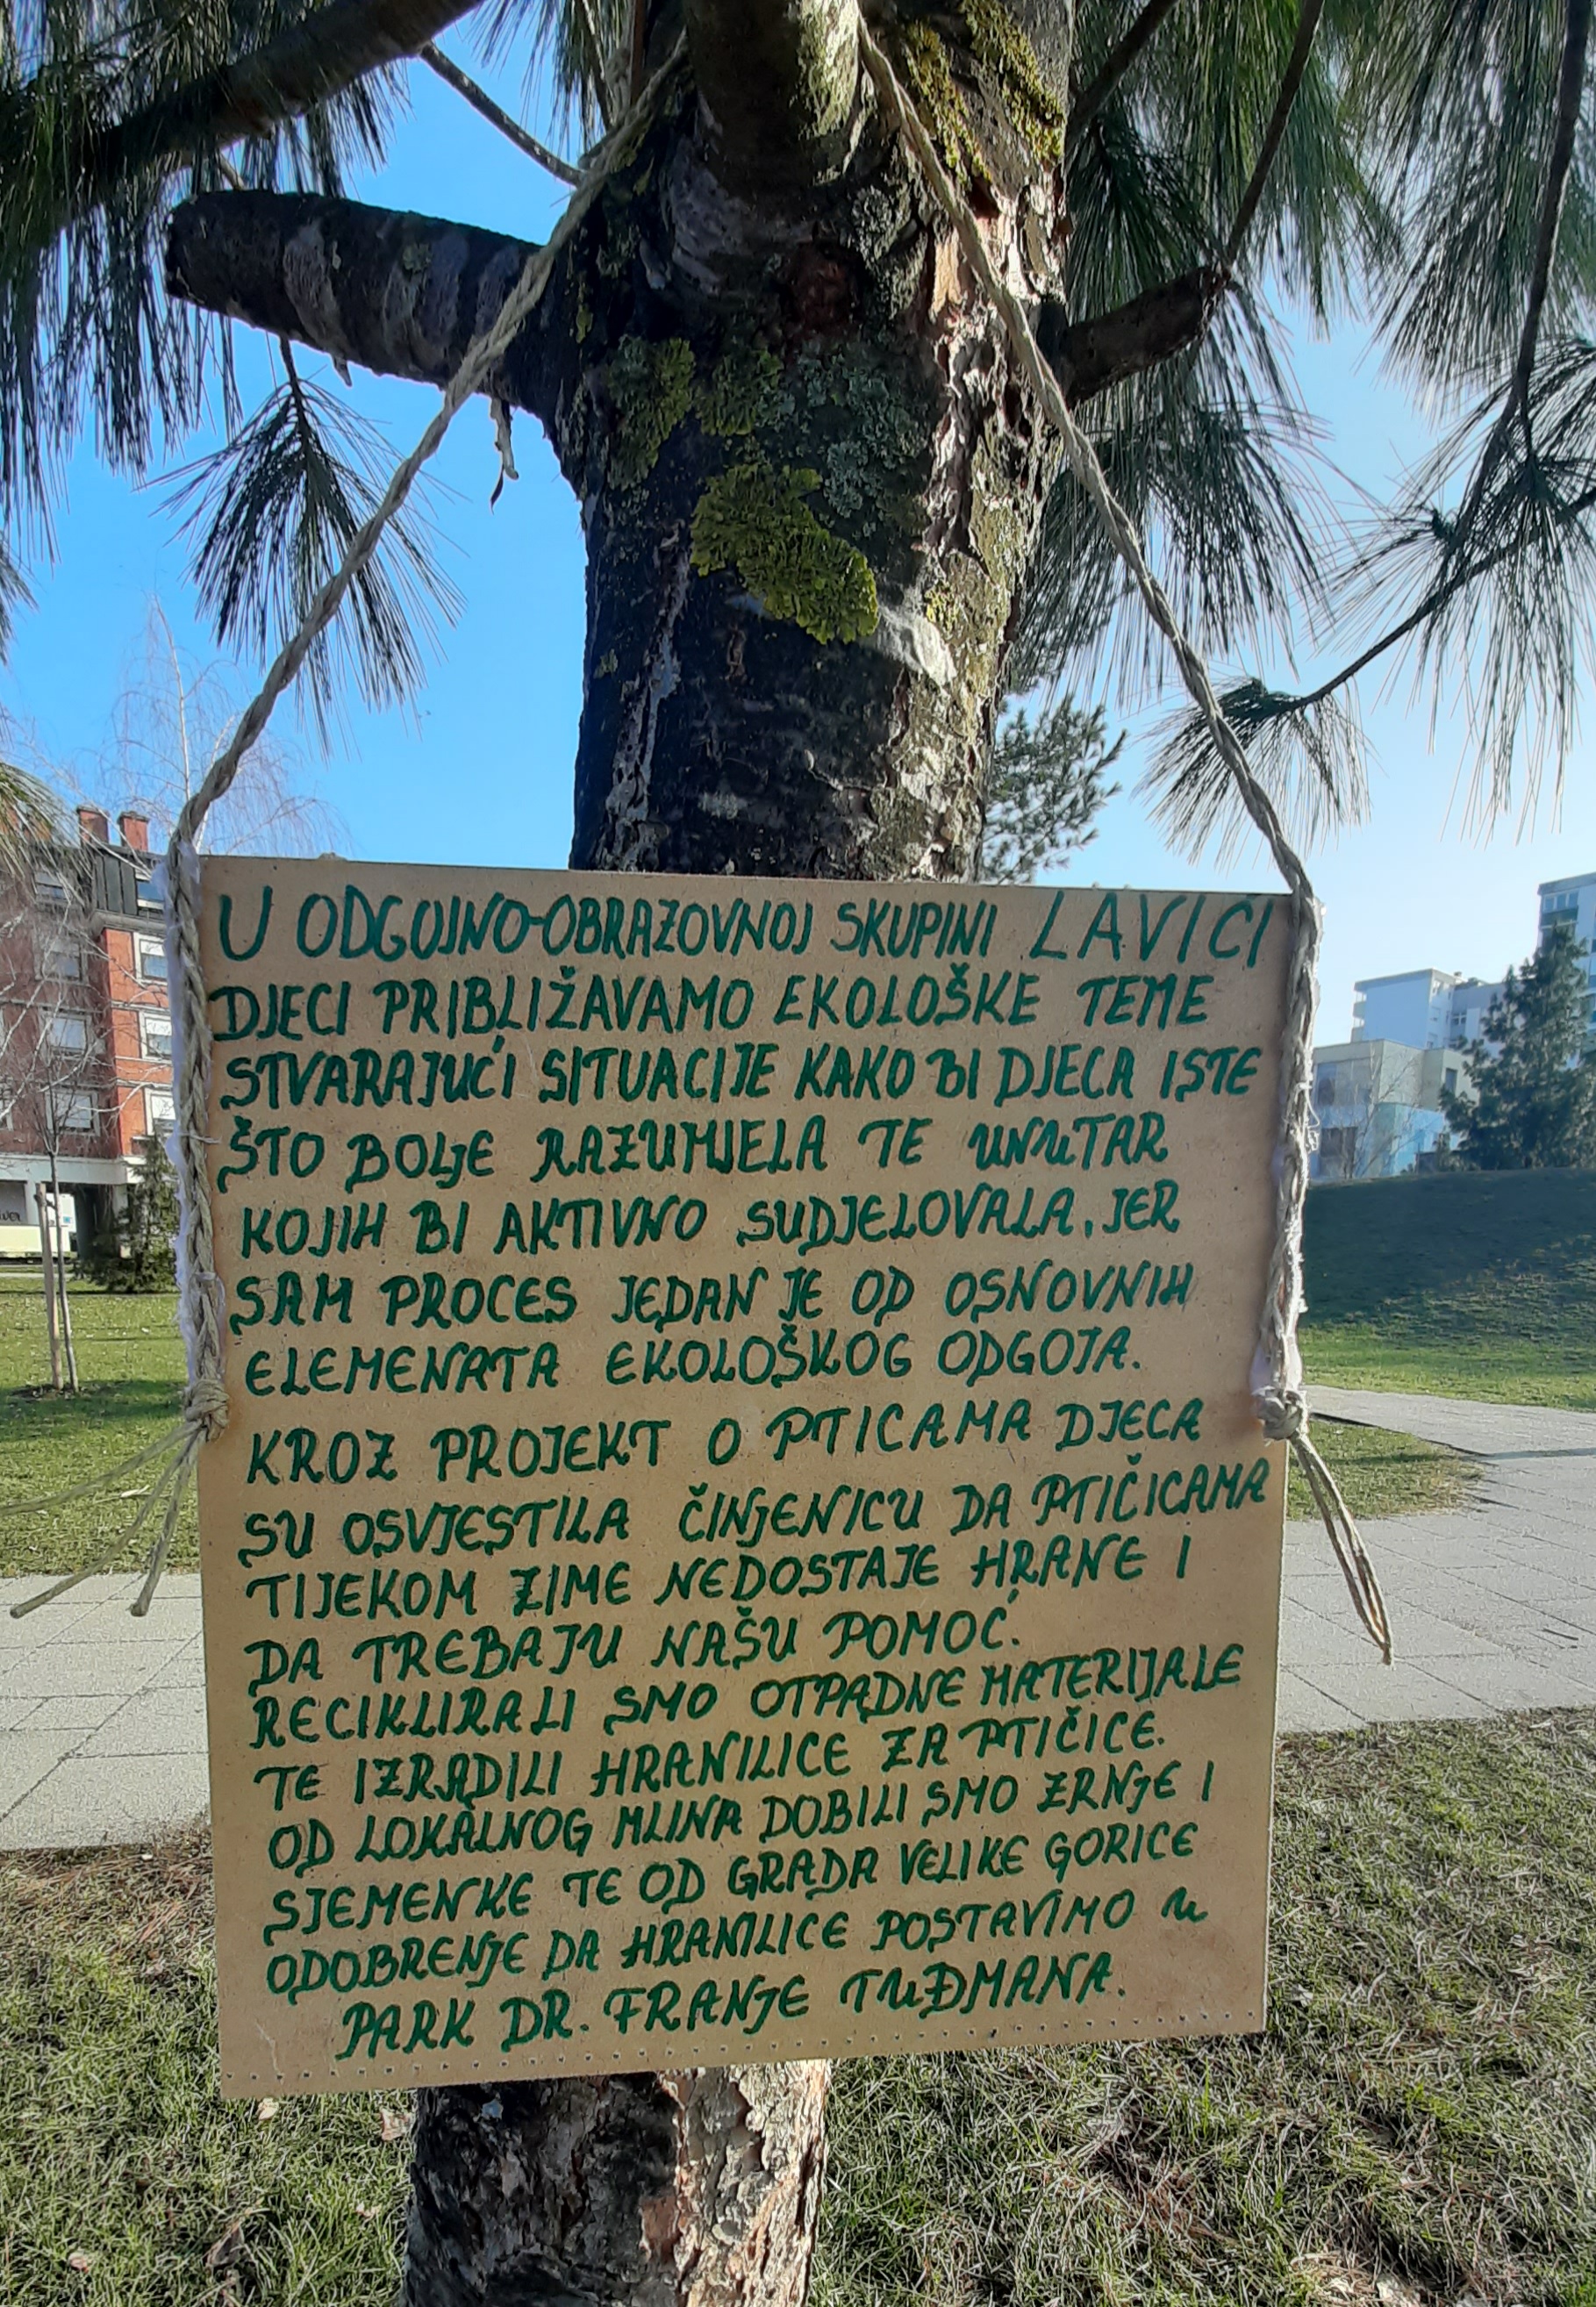 U ODGOJNO-OBRAZOVNOJ SKUPINI LAVIĆI
DJECI PRIBLIŽAVAMO EKOLOŠKE TEME
STVARAJUĆI SITUACIJE KAKO BI DJECA ISTE
ŠTO BOLJE RAZUMJELA TE UNUTAR
KOJIH BI AKTIVNO SUDJELOVALA, JER
SAM PROCES JEDAN JE OD OSNOVNIH
ELEMENATA EKOLOŠKOG ODGOJA.
KROZ PROJEKT O PTICAMA DJECA
SU OSVJESTILA ČINJENICU DA PTIČICAMA
TIJEKOM ZIME NEDOSTAJE HRANE I
DA TREBAJU NAŠU POMOĆ.
RECIKLIRALI SMO OTPADNE MATERIJALE
TE IZRADILI HRANILICE ZA PTIČICE.
OD LOKALNOG MLINA DOBILI SMO ZRNJE I
SJEMENKE TE OD GRADA VELIKE GORICE
ODOBRENJE DA HRANILICE POSTAVIMO U
PARK DR. FRANJE TUĐMANA.